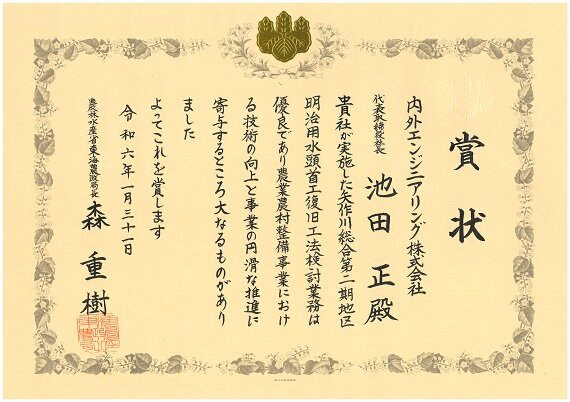 賞状
内外エンジニアリング株式会社
代表取締役社長
池田正殿
貴社が実施した矢作川総合第二期地区
明治用水頭首工復旧工法検討業務は
優良であり農業農村整備事業におけ
る技術の向上と事業の円滑な推進に
寄与するところ大なるものがあり
ました
よってこれを賞します
令和六年一月三十一日
農林水産省東海農政局長
森重樹